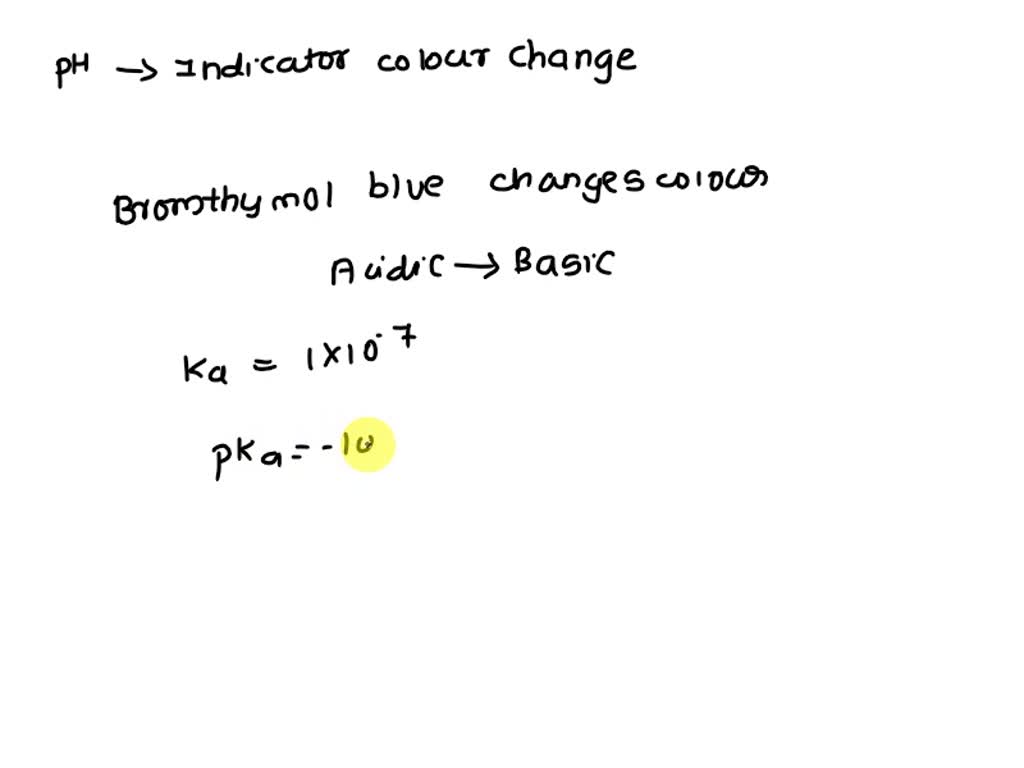 pH → Indicator colour change
Bromthymol blue changes colour
Acidic → Basic
Ka = 1x10⁻⁷
pKa = -10